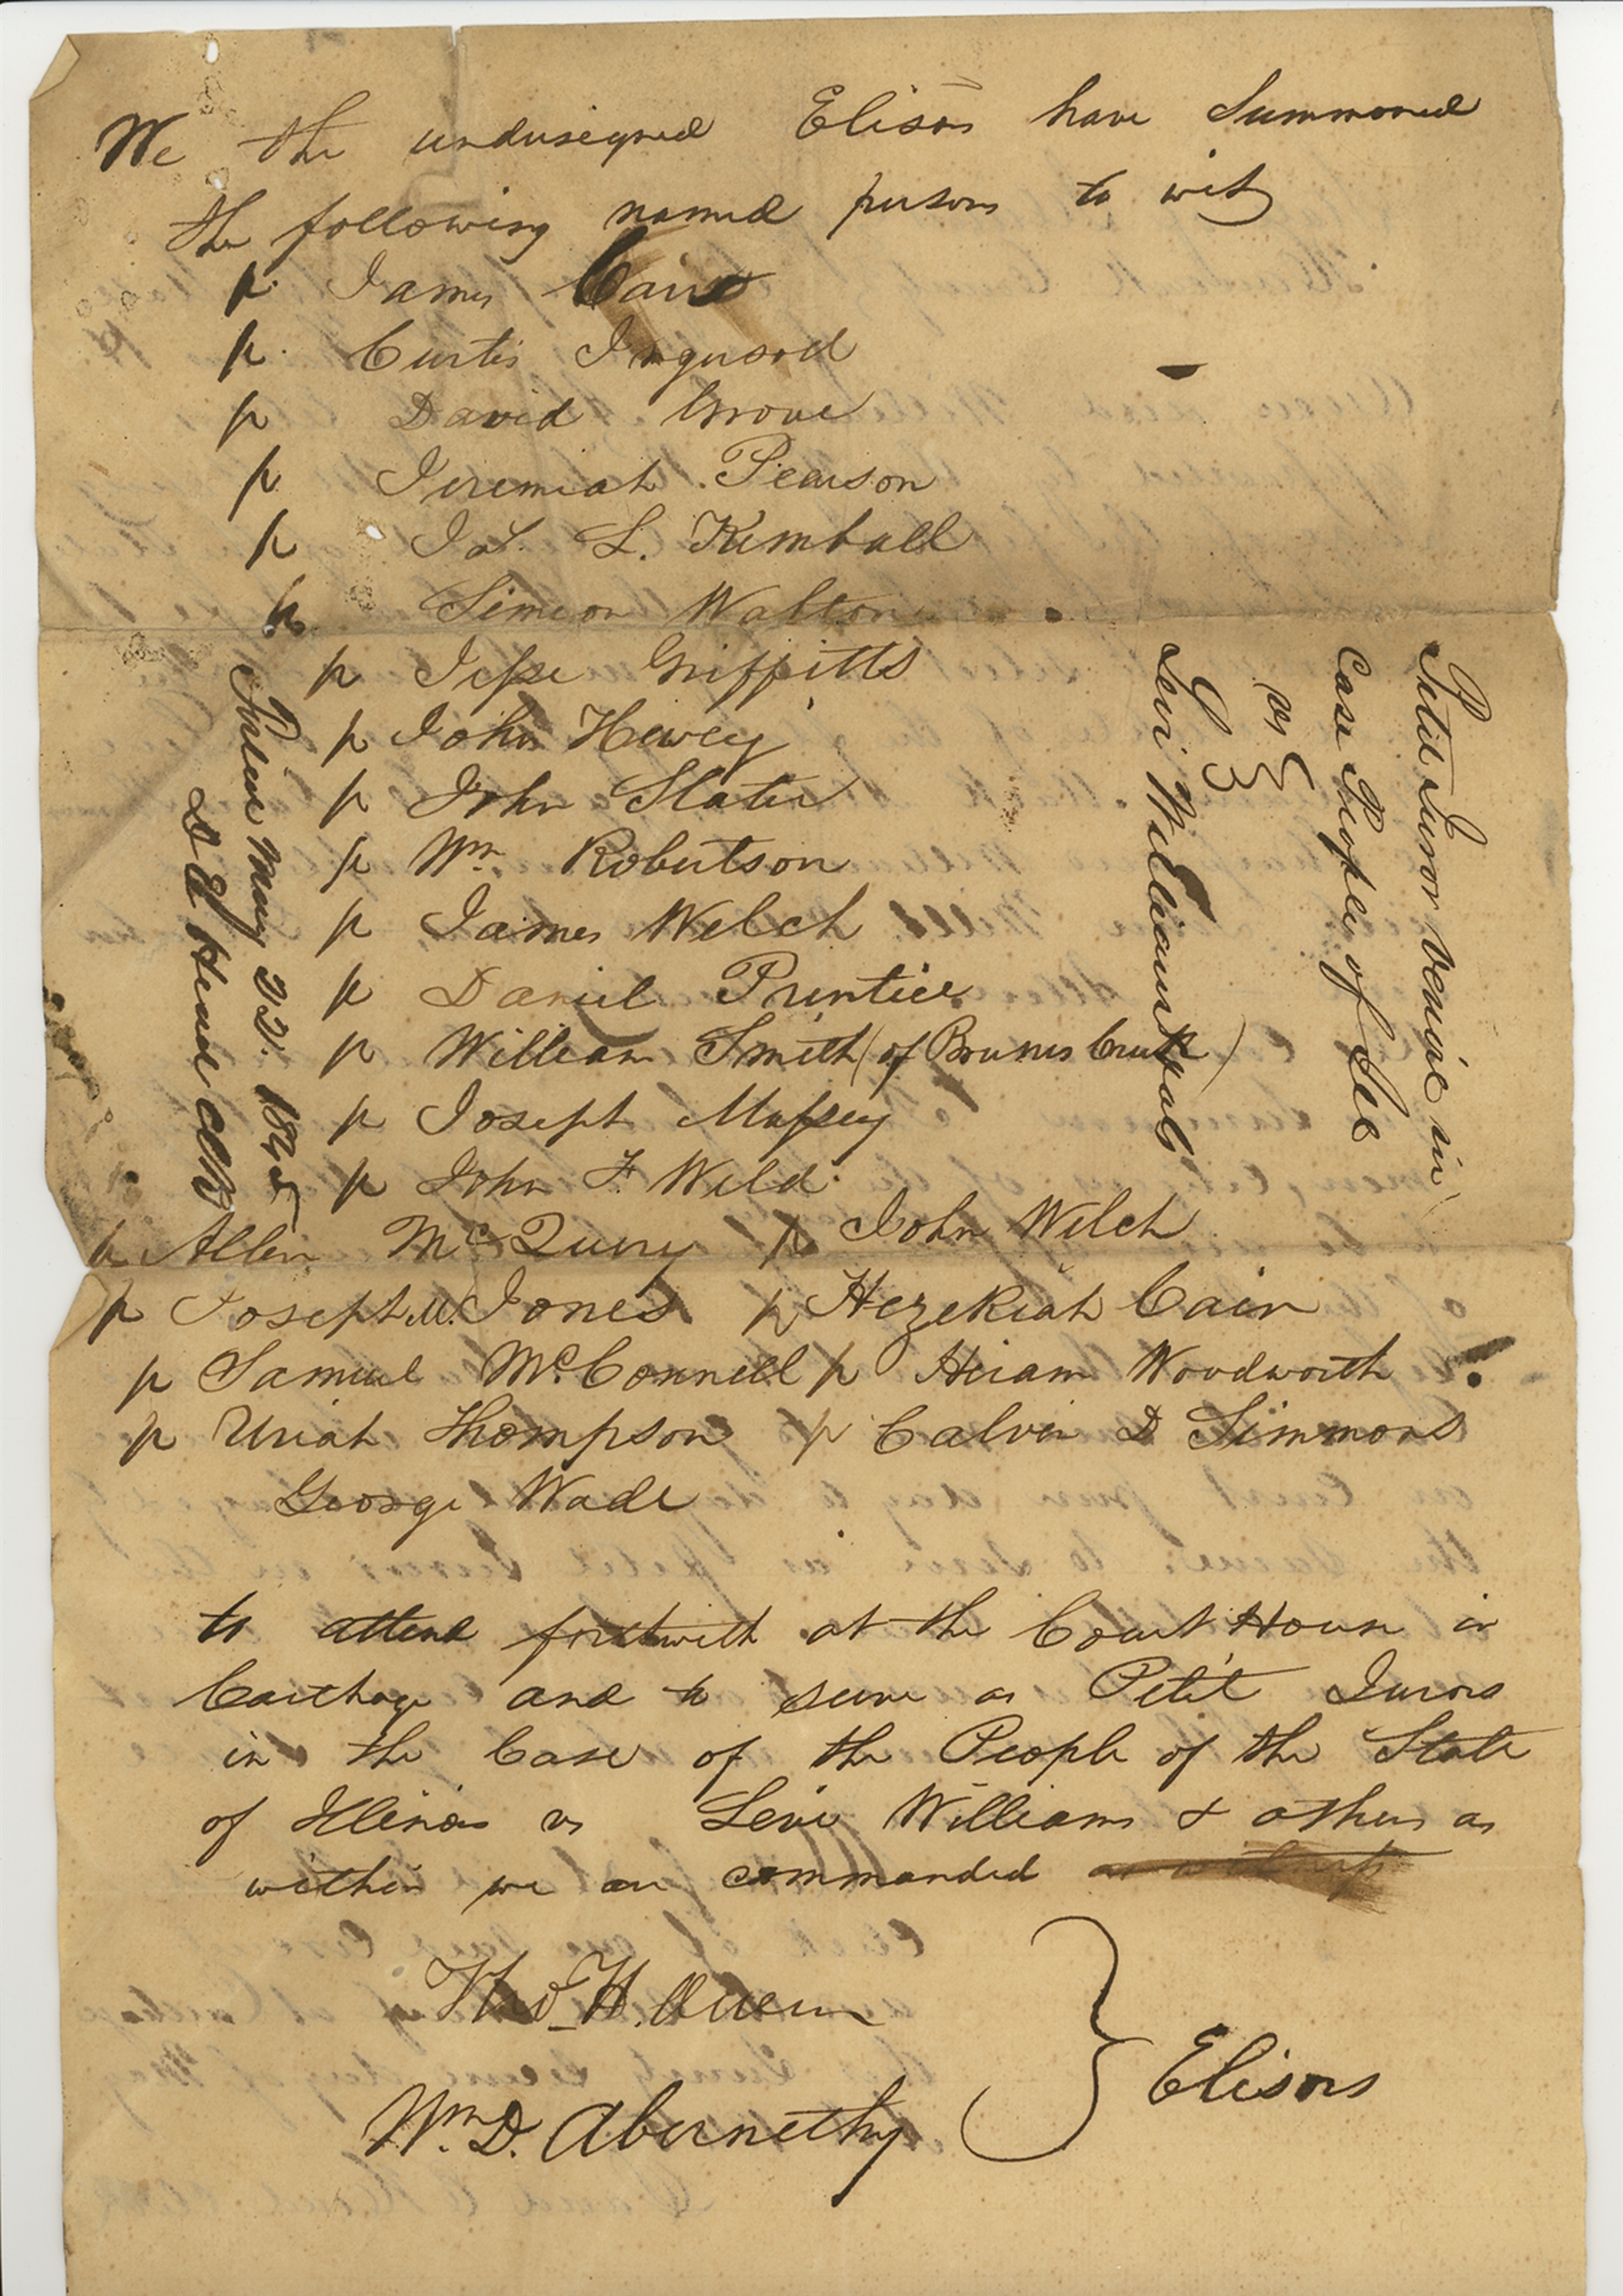 We the undersigned Elisors have Summoned
the following named persons to wit
p. James Cain
p. Curtis Ingersoll
p David Grove
p Jeremiah Pearson
p L. Kimball
p. Simeon Walton
p Jesse Griffitts
p John Hewey
p John Slater
p Wm. Robertson
p James Welch
p Daniel Prentice
p William Smith (of Brunes Creek)
p Joseph Massey
p John F. Weld
p Allen McQuery p John Welch
p Joseph M. Jones p Hezekiah Cain
p Samuel McConnell p Hiram Woodworth
p Uriah Thompson p Calvin D Simmons
George Wade
to attend forthwith at the Court House in
Carthage and to serve as Petit Jurors
in the Case of the People of the State
of Illinois vs Levi Williams & others as
within we are commanded
Thos. H. Owen
Wm. D. Abernethy
Elisors
Petit Juror venire in
Case People of Ill
vs
Levi Williams et als
Filed May 22. 1845
D E Head Clk